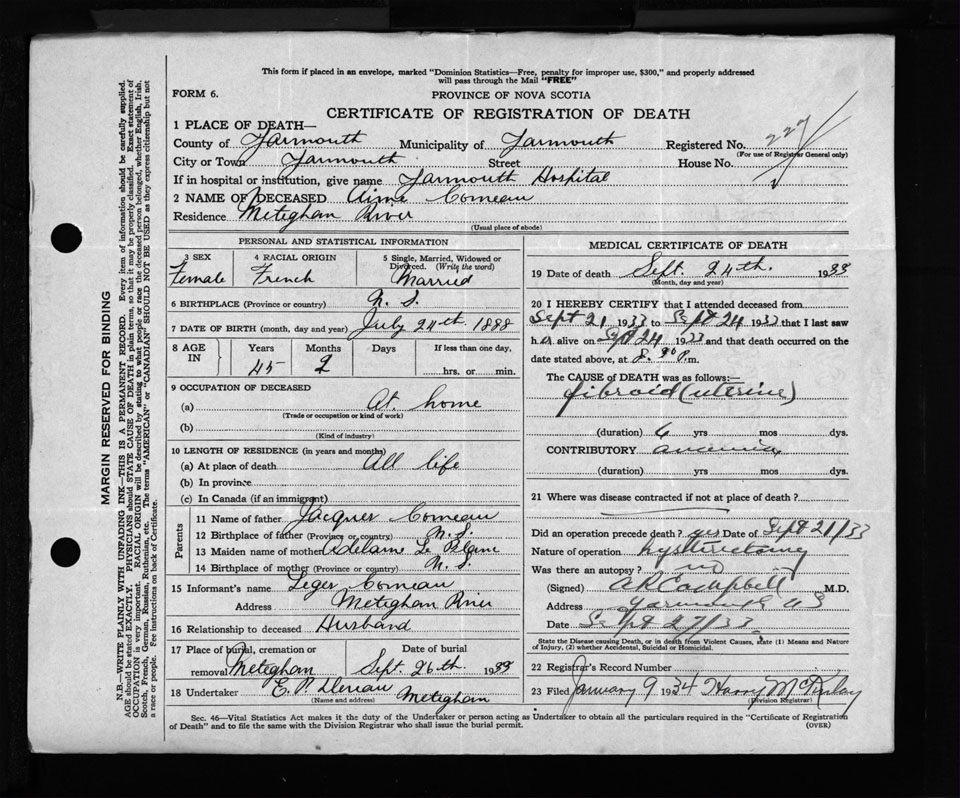 This form if placed in an envelope, marked "Dominion Statistics—Free, penalty for improper use, $300," and properly addressed
will pass through the Mail "FREE"
FORM 6.
PROVINCE OF NOVA SCOTIA
CERTIFICATE OF REGISTRATION OF DEATH
1 PLACE OF DEATH—
County of Yarmouth Municipality of Yarmouth Registered No. 227
(For use of Registrar General only)
City or Town Yarmouth Street House No.
If in hospital or institution, give name Yarmouth Hospital
2 NAME OF DECEASED Aimé Comeau
Residence Meteghan River
(Usual place of abode)
MARGIN RESERVED FOR BINDING
N.B.—WRITE PLAINLY WITH UNFADING INK—THIS IS A PERMANENT RECORD. Every item of information should be carefully supplied.
AGE should be stated EXACTLY. PHYSICIANS should STATE CAUSE OF DEATH in plain terms, so that it may be properly classified. Exact statement of
OCCUPATION is very important. RACIAL ORIGIN will be described by stating to what people or race the deceased person belonged, whether English, Irish,
Scotch, French, German, Russian, Ruthenian, etc. The terms "AMERICAN" or "CANADIAN" SHOULD NOT BE USED as they express citizenship but not
a race or people. Fee instructions on back of Certificate.
PERSONAL AND STATISTICAL INFORMATION
3 SEX
Female
4 RACIAL ORIGIN
French
5 Single, Married, Widowed or
Divorced. (Write the word)
Married
6 BIRTHPLACE (Province or country) N. S.
7 DATE OF BIRTH (month, day and year) July 24th 1888
8 AGE IN
Years
45
Months
2
Days
If less than one day,
hrs. or min.
9 OCCUPATION OF DECEASED
(a) At home
(Trade or occupation or kind of work)
(b)
(Kind of industry)
10 LENGTH OF RESIDENCE (in years and months)
(a) At place of death All life
(b) In province
(c) In Canada (if an immigrant)
Parents
11 Name of father Jacques Comeau
12 Birthplace of father (Province or country) N. S.
13 Maiden name of mother Le Blanc
14 Birthplace of mother (Province or country) N. S.
15 Informant's name Leger Comeau
Address Meteghan River
16 Relationship to deceased Husband
17 Place of burial, cremation or
removal Meteghan
Date of burial
Sept. 26th. 1933
18 Undertaker Meteghan
(Name and address)
MEDICAL CERTIFICATE OF DEATH
19 Date of death Sept. 24th. 1933
(Month, day and year)
20 I HEREBY CERTIFY that I attended deceased from
Sept 21 1933 to Sept 24 1933 that I last saw
h alive on Sept 24 1933 and that death occurred on the
date stated above, at 8.30 P.m.
The CAUSE of DEATH was as follows:—
fibroid (uterine)
(duration) 6 yrs mos dys.
CONTRIBUTORY anaemia
(duration) yrs mos dys.
21 Where was disease contracted if not at place of death?
Did an operation precede death? yes Date of Sept 21/33
Nature of operation hysterectomy
Was there an autopsy? no
(Signed) A R Campbell M.D.
Address Yarmouth NS
Date Sept 27/33
State the Disease causing Death, or is death from Violent Causes, state (1) Means and Nature
of Injury, (2) whether Accidental, Suicidal or Homicidal.
22 Registrar's Record Number
23 Filed January 9 1934 Harry McKinlay
(Division Registrar)
Sec. 46—Vital Statistics Act makes it the duty of the Undertaker or person acting as Undertaker to obtain all the particulars required in the "Certificate of Registration
of Death" and to file the same with the Division Registrar who shall issue the burial permit. (OVER)